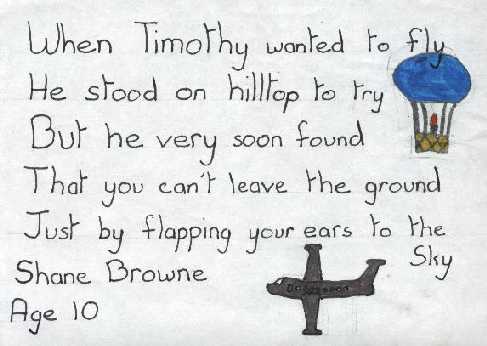 When Timothy wanted to fly
He stood on hilltop to try
But he very soon found
That you can't leave the ground
Just by flapping your ears to the
Sky
Shane Browne
Age 10